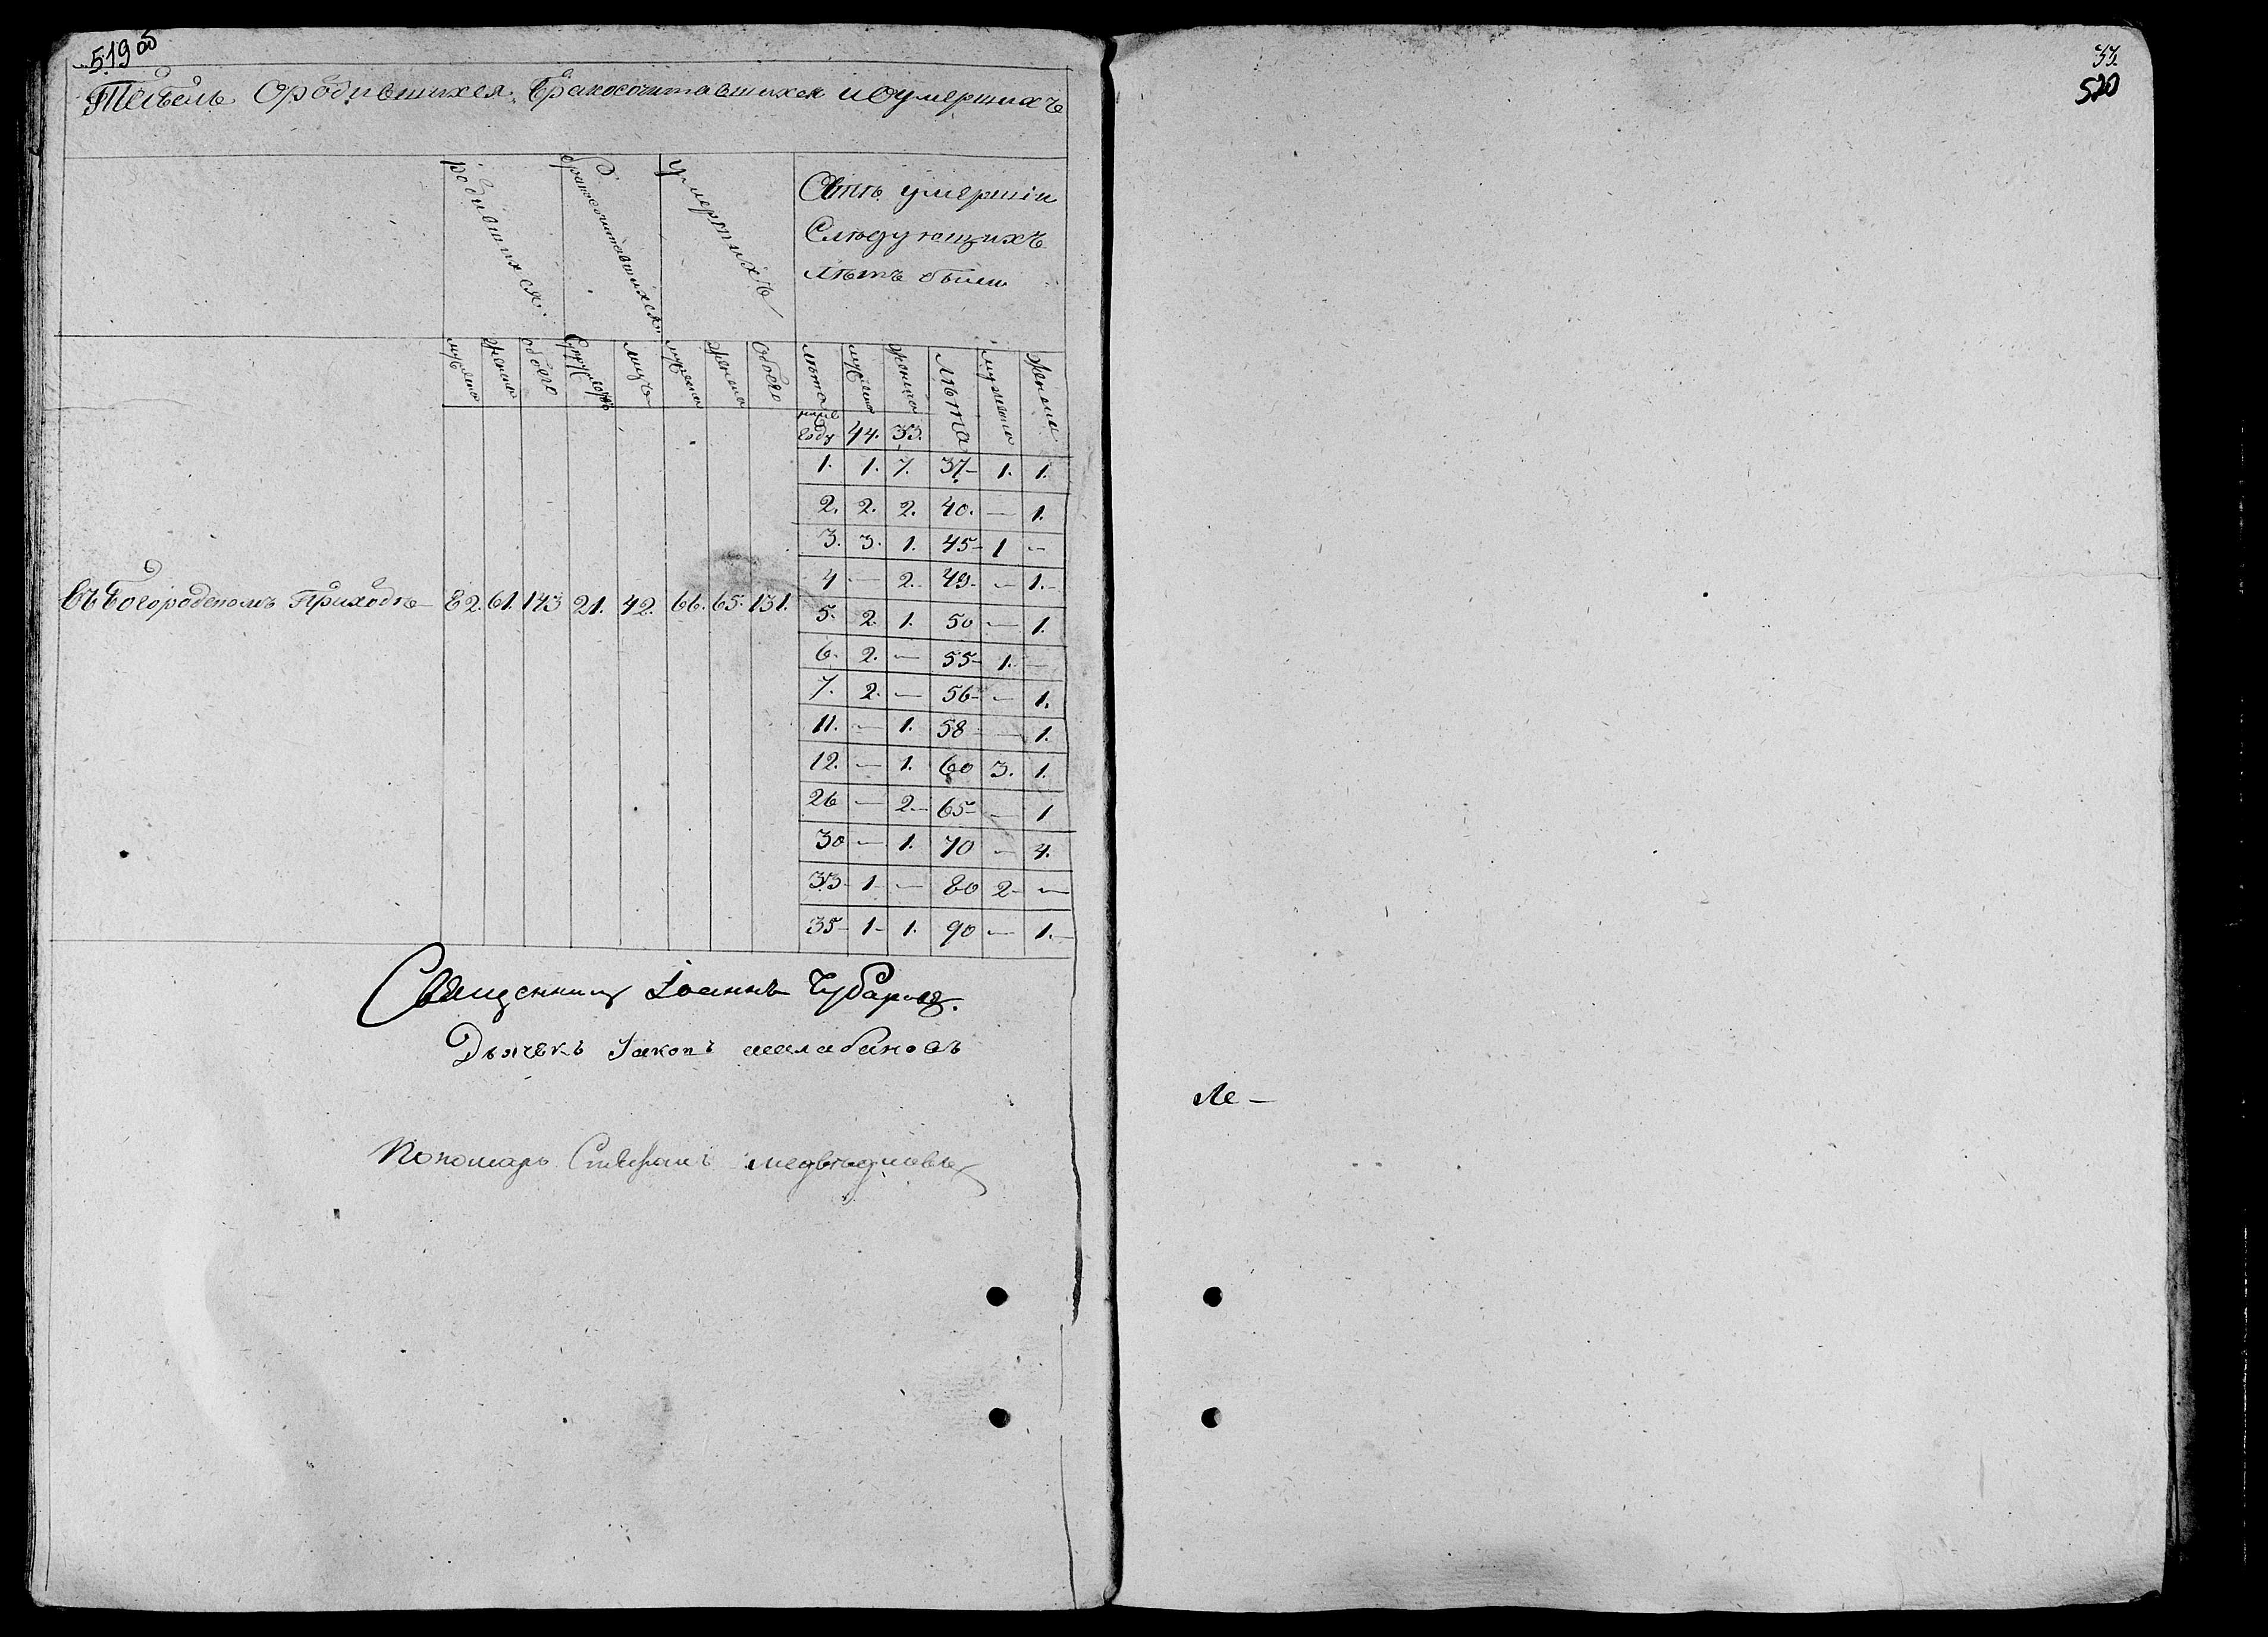 519 об
Табель Ородившихся, Бракосочитавшихся иОумершихъ
родившихся.
бракосочитавшихся.
умершихъ
Сіть умершіи
Слѣдующихъ
лѣтъ были
мужеска женска обоего Супруговъ лицъ мужеска женска Обоего лѣта мужеска женска лѣта мужеска женска
ниже
году 44. 33.
1. 1. 7. 37- 1. 1.
2. 2. 2. 40. — 1.
3. 3. 1. 45- 1 —
4 — 2. 49. — 1.-
ВъБогородскомъ Приходѣ 82. 61. 143 21. 42. 66. 65. 131.
5. 2. 1. 50 — 1.
6. 2. — 55- 1. —
7. 2. — 56- — 1.
11. — 1. 58 — 1.
12. — 1. 60 3. 1.
26 — 2.- 65- — 1
30 — 1. 70 — 4.
33- 1- — 80 2- —
35- 1- 1. 90 — 1.-
Священникъ Іоаннъ Чубаровъ.
Дьячекъ Іаковъ шалабановъ
Пономарь Стефанъ медвѣдковъ
33.
520
Ле —